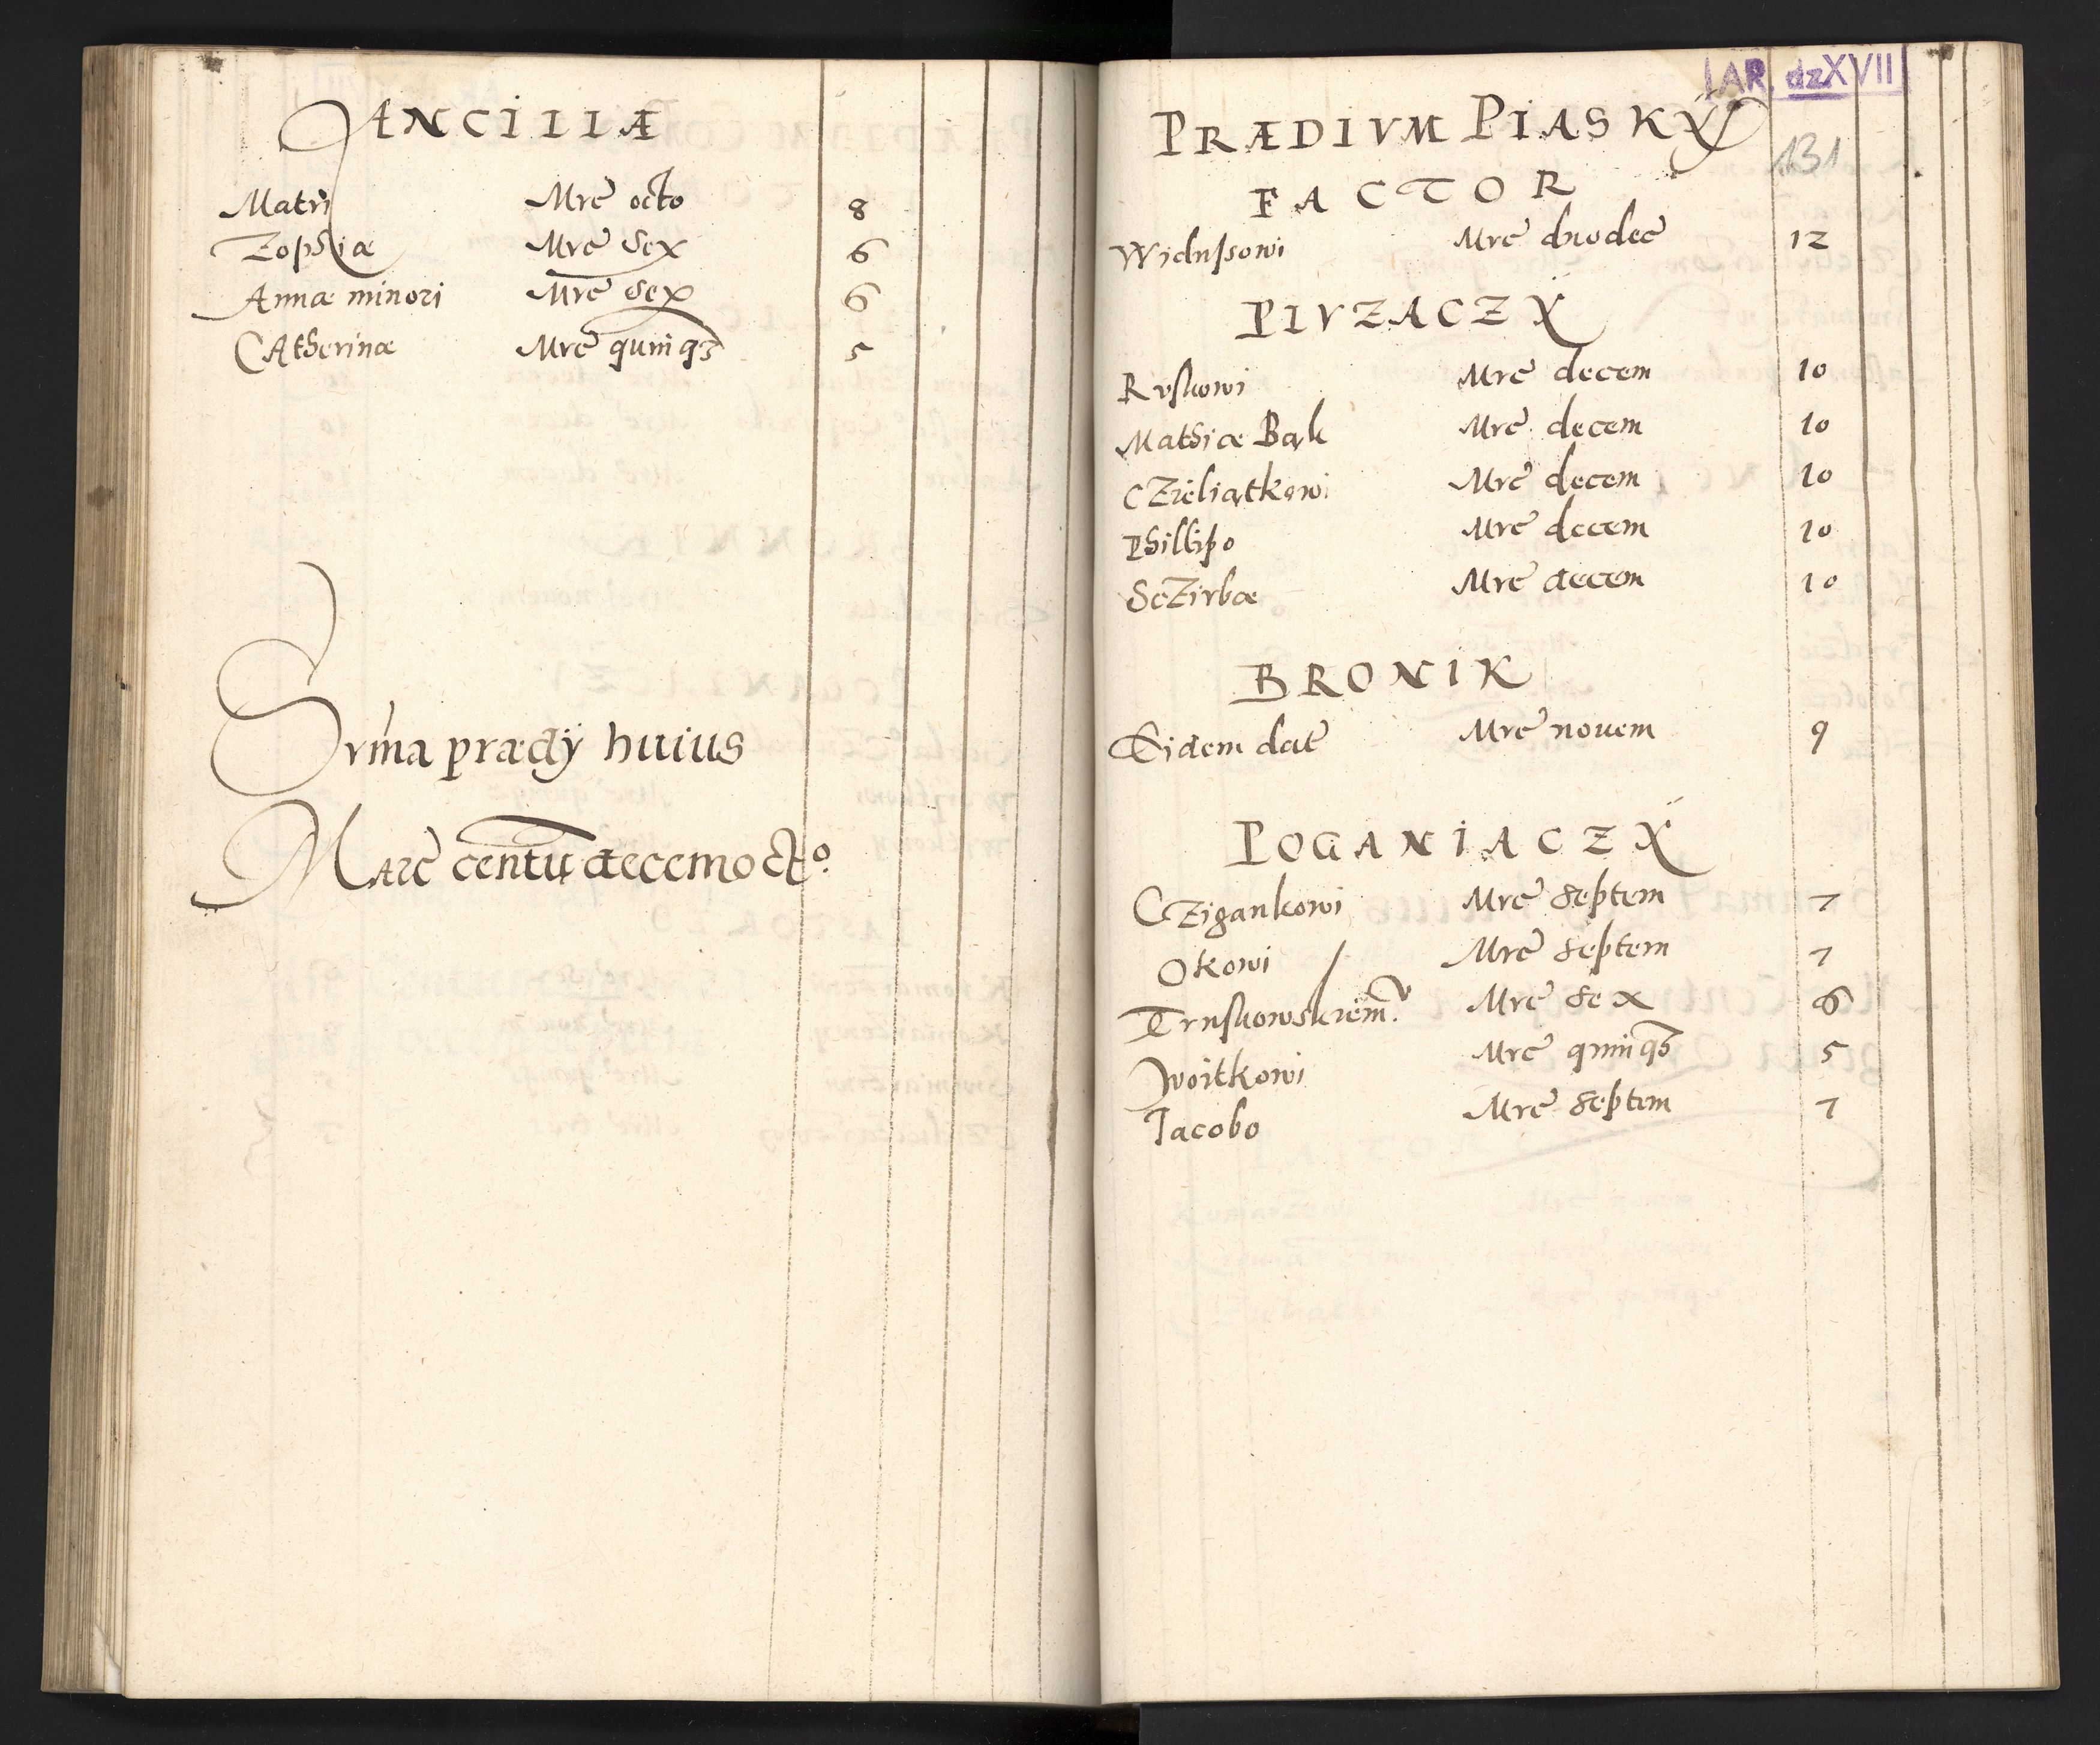 ANCILLÆ
Matri Mrc̄ octo 8
Zophiæ Mrc̄ sex 6
Annæ minori Mrc̄ sex 6
CAtherinæ Mrc̄ quinqȝ 5
Sum̄a prædÿ huius
Marc̄ centū decemocto
AR dzXVII
131
PRÆDIVM PIASKŸ
FACTOR
Widussowi Mrc̄ duodec̄ 12
PLVZACZŸ
Ruskowi Mrc̄ decem 10
Mathiæ Bąk Mrc̄ decem 10
CZieliątkowi Mrc̄ decem 10
Phillipo Mrc̄ decem 10
ScZirbæ Mrc̄ decem 10
BRONIK
Eidem dat̄ Mrc̄ nouem 9
POGANIACZŸ
CZigankowi Mrc̄ septem 7
Okowi Mrc̄ septem 7
Truskowskiem̄v Mrc̄ sex 6
Woitkowi Mrc̄ quinqȝ 5
Jacobo Mrc̄ septem 7